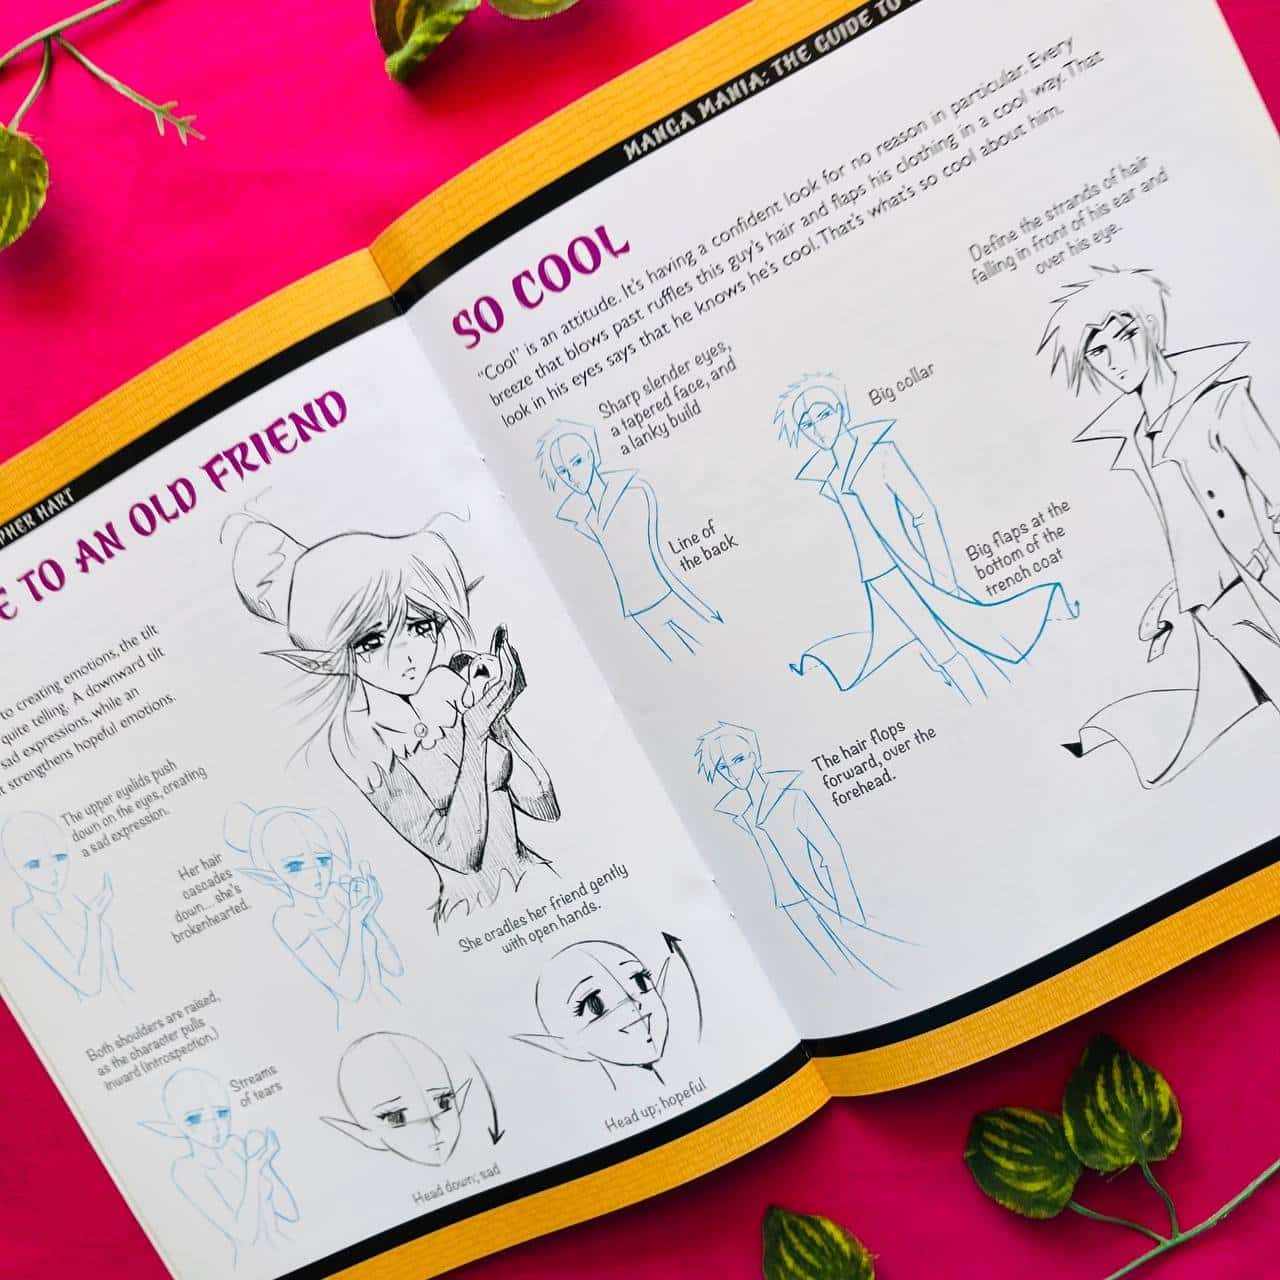 PHER HART
E TO AN OLD FRIEND
to creating emotions, the tilt
quite telling. A downward tilt
sad expressions, while an
strengthens hopeful emotions.
The upper eyelids push
down on the eyes, creating
a sad expression.
Her hair
cascades
down... she's
brokenhearted.
She cradles her friend gently
with open hands.
Both shoulders are raised,
as the character pulls
inward (introspection.)
Streams
of tears
Head down; sad
Head up; hopeful
MANGA MANIA: THE GUIDE TO
SO COOL
"Cool" is an attitude. It's having a confident look for no reason in particular. Every
breeze that blows past ruffles this guy's hair and flaps his clothing in a cool way. That
look in his eyes says that he knows he's cool. That's what's so cool about him.
Sharp slender eyes,
a tapered face, and
a lanky build
Line of
the back
Big collar
Big flaps at the
bottom of the
trench coat
Define the strands of hair
falling in front of his ear and
over his eye.
The hair flops
forward, over the
forehead.